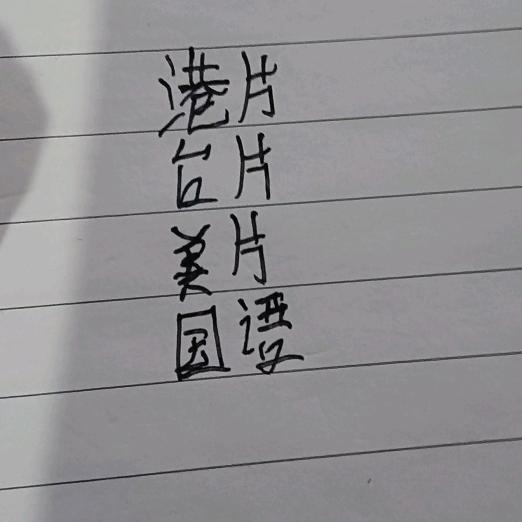 港片
台片
美片
国谩